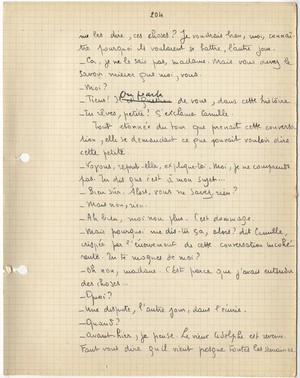 204
me les dire, ces choses ? Je voudrais bien, moi, connaî-
tre pourquoi ils voulaient se battre, l'autre jour.
_ Ça, je ne le sais pas, madame. Mais vous devez le
savoir mieux que moi, vous.
_ Moi ?
On parle
_ Tiens ! de vous, dans cette histoire.
_ Tu rêves, petite ! s'exclama Camille.
Tout étonnée du tour que prenait cette conversa-
tion, elle se demandait ce que pouvait vouloir dire
cette petite.
_ Voyons, reprit-elle, explique-toi. Moi, je ne comprends
pas. Tu dis que c'est à mon sujet...
_ Bien sûr. Alors, vous ne savez rien ?
_ Mais non, rien.
_ Ah bien, moi non plus. C'est dommage.
_ Mais pourquoi me dis-tu ça, alors ? dit Camille,
crispée par l'énervement de cette conversation incohé-
rente. Tu te moques de moi ?
_ Oh non, madame. C'est parce que j'avais entendu
des choses...
_ Quoi ?
_ Une dispute, l'autre jour, dans l'écurie.
_ Quand ?
_ Avant-hier, je pense. Le vieux Adolphe est venu.
Faut vous dire qu'il vient presque toutes les semaines